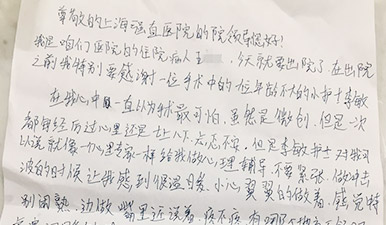 尊敬的上海强直医院的院领导您好!
我是咱们医院的住院病人王 今天就要出院了在出院
之前我特别要感谢一位手术中的一位年龄不大的小护士李敏
在我心中一直以为手术最可怕,虽然是微创,但是一次
都没经历过心里还是七上八下,忐忑不安,但是李敏护士对我可
以说就像一个心理专家一样给我做心理辅导,不要紧张,做冲击
波的时候让我感到很温暖,小心翼翼的做着,感觉特
别闲熟,边做嘴里还说着,疼不疼,有